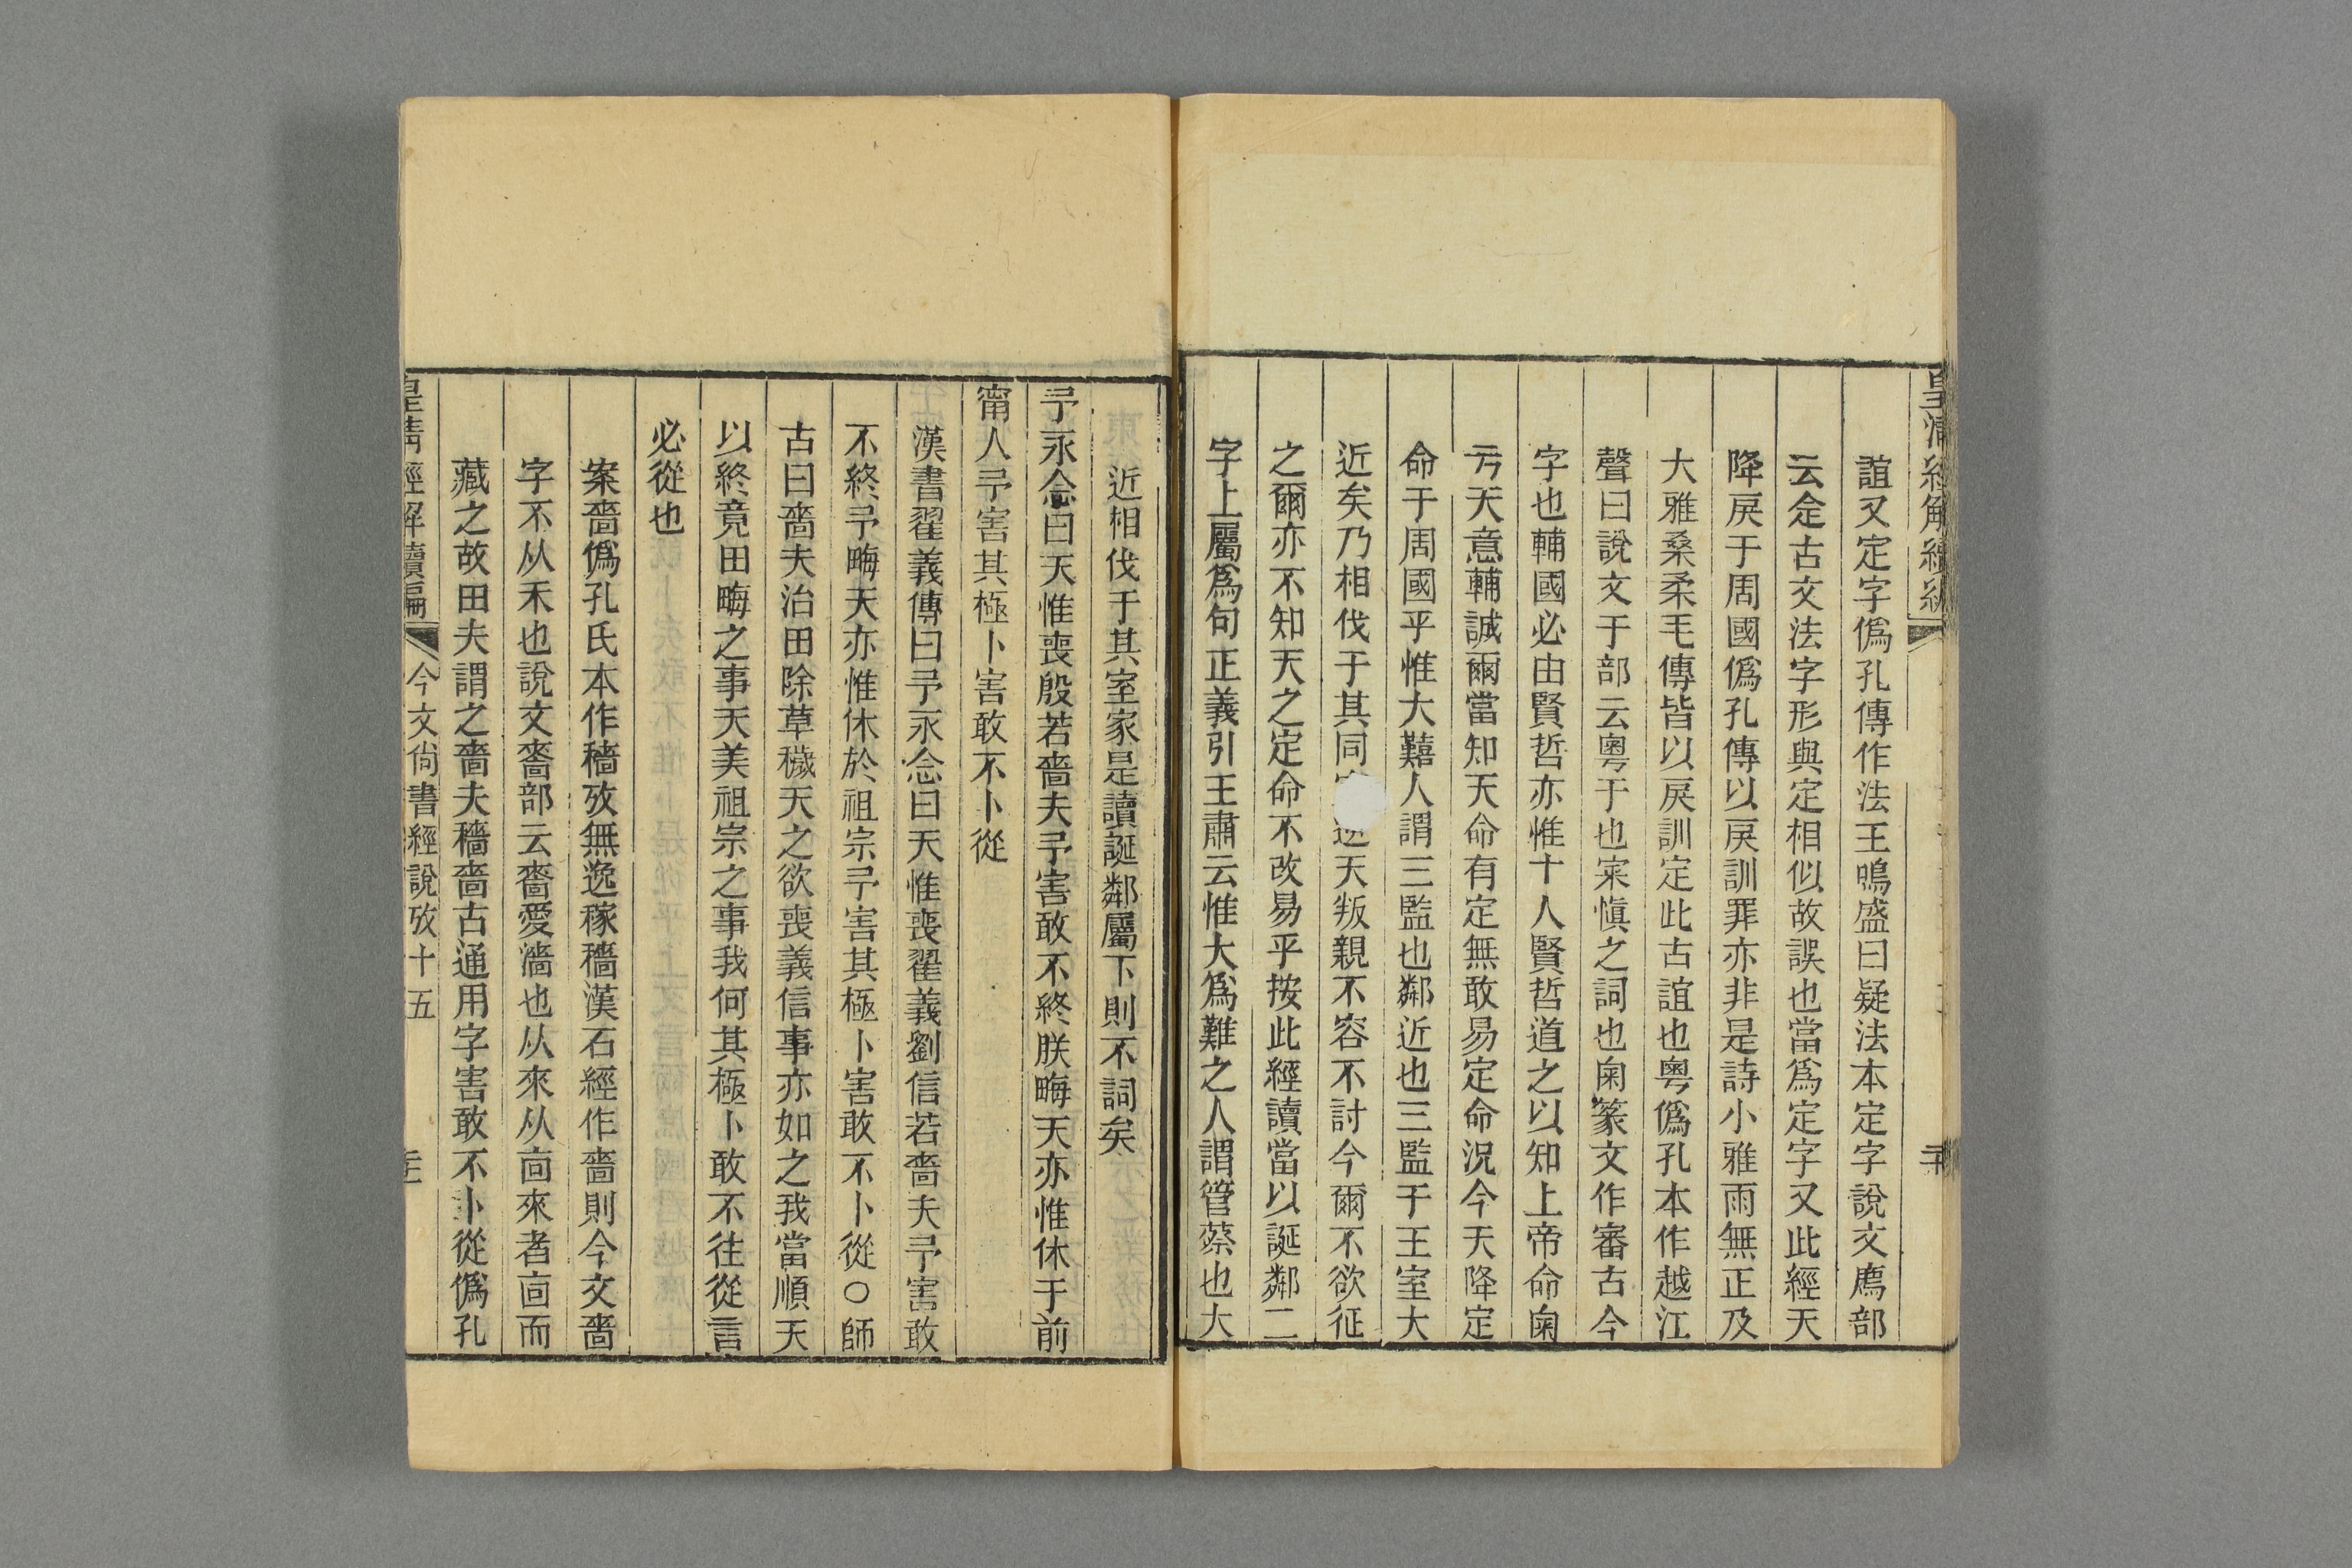 皇清經解續編
誼又定字僞孔傳作法王鳴盛曰疑法本定字說文廌部
云㝎古文法字形與定相似故誤也當爲定字又此經天
降戾于周國僞孔傳以戾訓罪亦非是詩小雅雨無正及
大雅桑柔毛傳皆以戾訓定此古誼也粵僞孔本作越江
聲曰說文于部云粵于也宷愼之詞也㝥篆文作審古今
字也輔國必由賢哲亦惟十人賢哲道之以知上帝命㝥
亏天意輔誠爾當知天命有定無敢易定命況今天降定
命于周國乎惟大囏人謂三監也鄰近也三監于王室大
近矣乃相伐于其同天叛親不容不討今爾不欲征
之爾亦不知天之定命不改易乎按此經讀當以誕鄰二
字上屬爲句正義引王肅云惟大爲難之人謂管蔡也大
近相伐于其室家是讀誕鄰屬下則不詞矣
予永念曰天惟喪殷若嗇夫予害敢不終朕畮天亦惟休于前
甯人予害其極卜害敢不卜從
漢書翟義傳曰予永念曰天惟喪翟義劉信若嗇夫予害敢
不終予畮天亦惟休於祖宗予害其極卜害敢不卜從○師
古曰嗇夫治田除草穢天之欲喪義信事亦如之我當順天
以終竟田畮之事天美祖宗之事我何其極卜敢不往從言
必從也
案嗇僞孔氏本作穡攷無逸稼穡漢石經作嗇則今文嗇
字不从禾也說文嗇部云嗇愛濇也从來从㐭來者㐭而
藏之故田夫謂之嗇夫穡嗇古通用字害敢不卜從僞孔
皇清經解續編 今文尙書經說攷十五